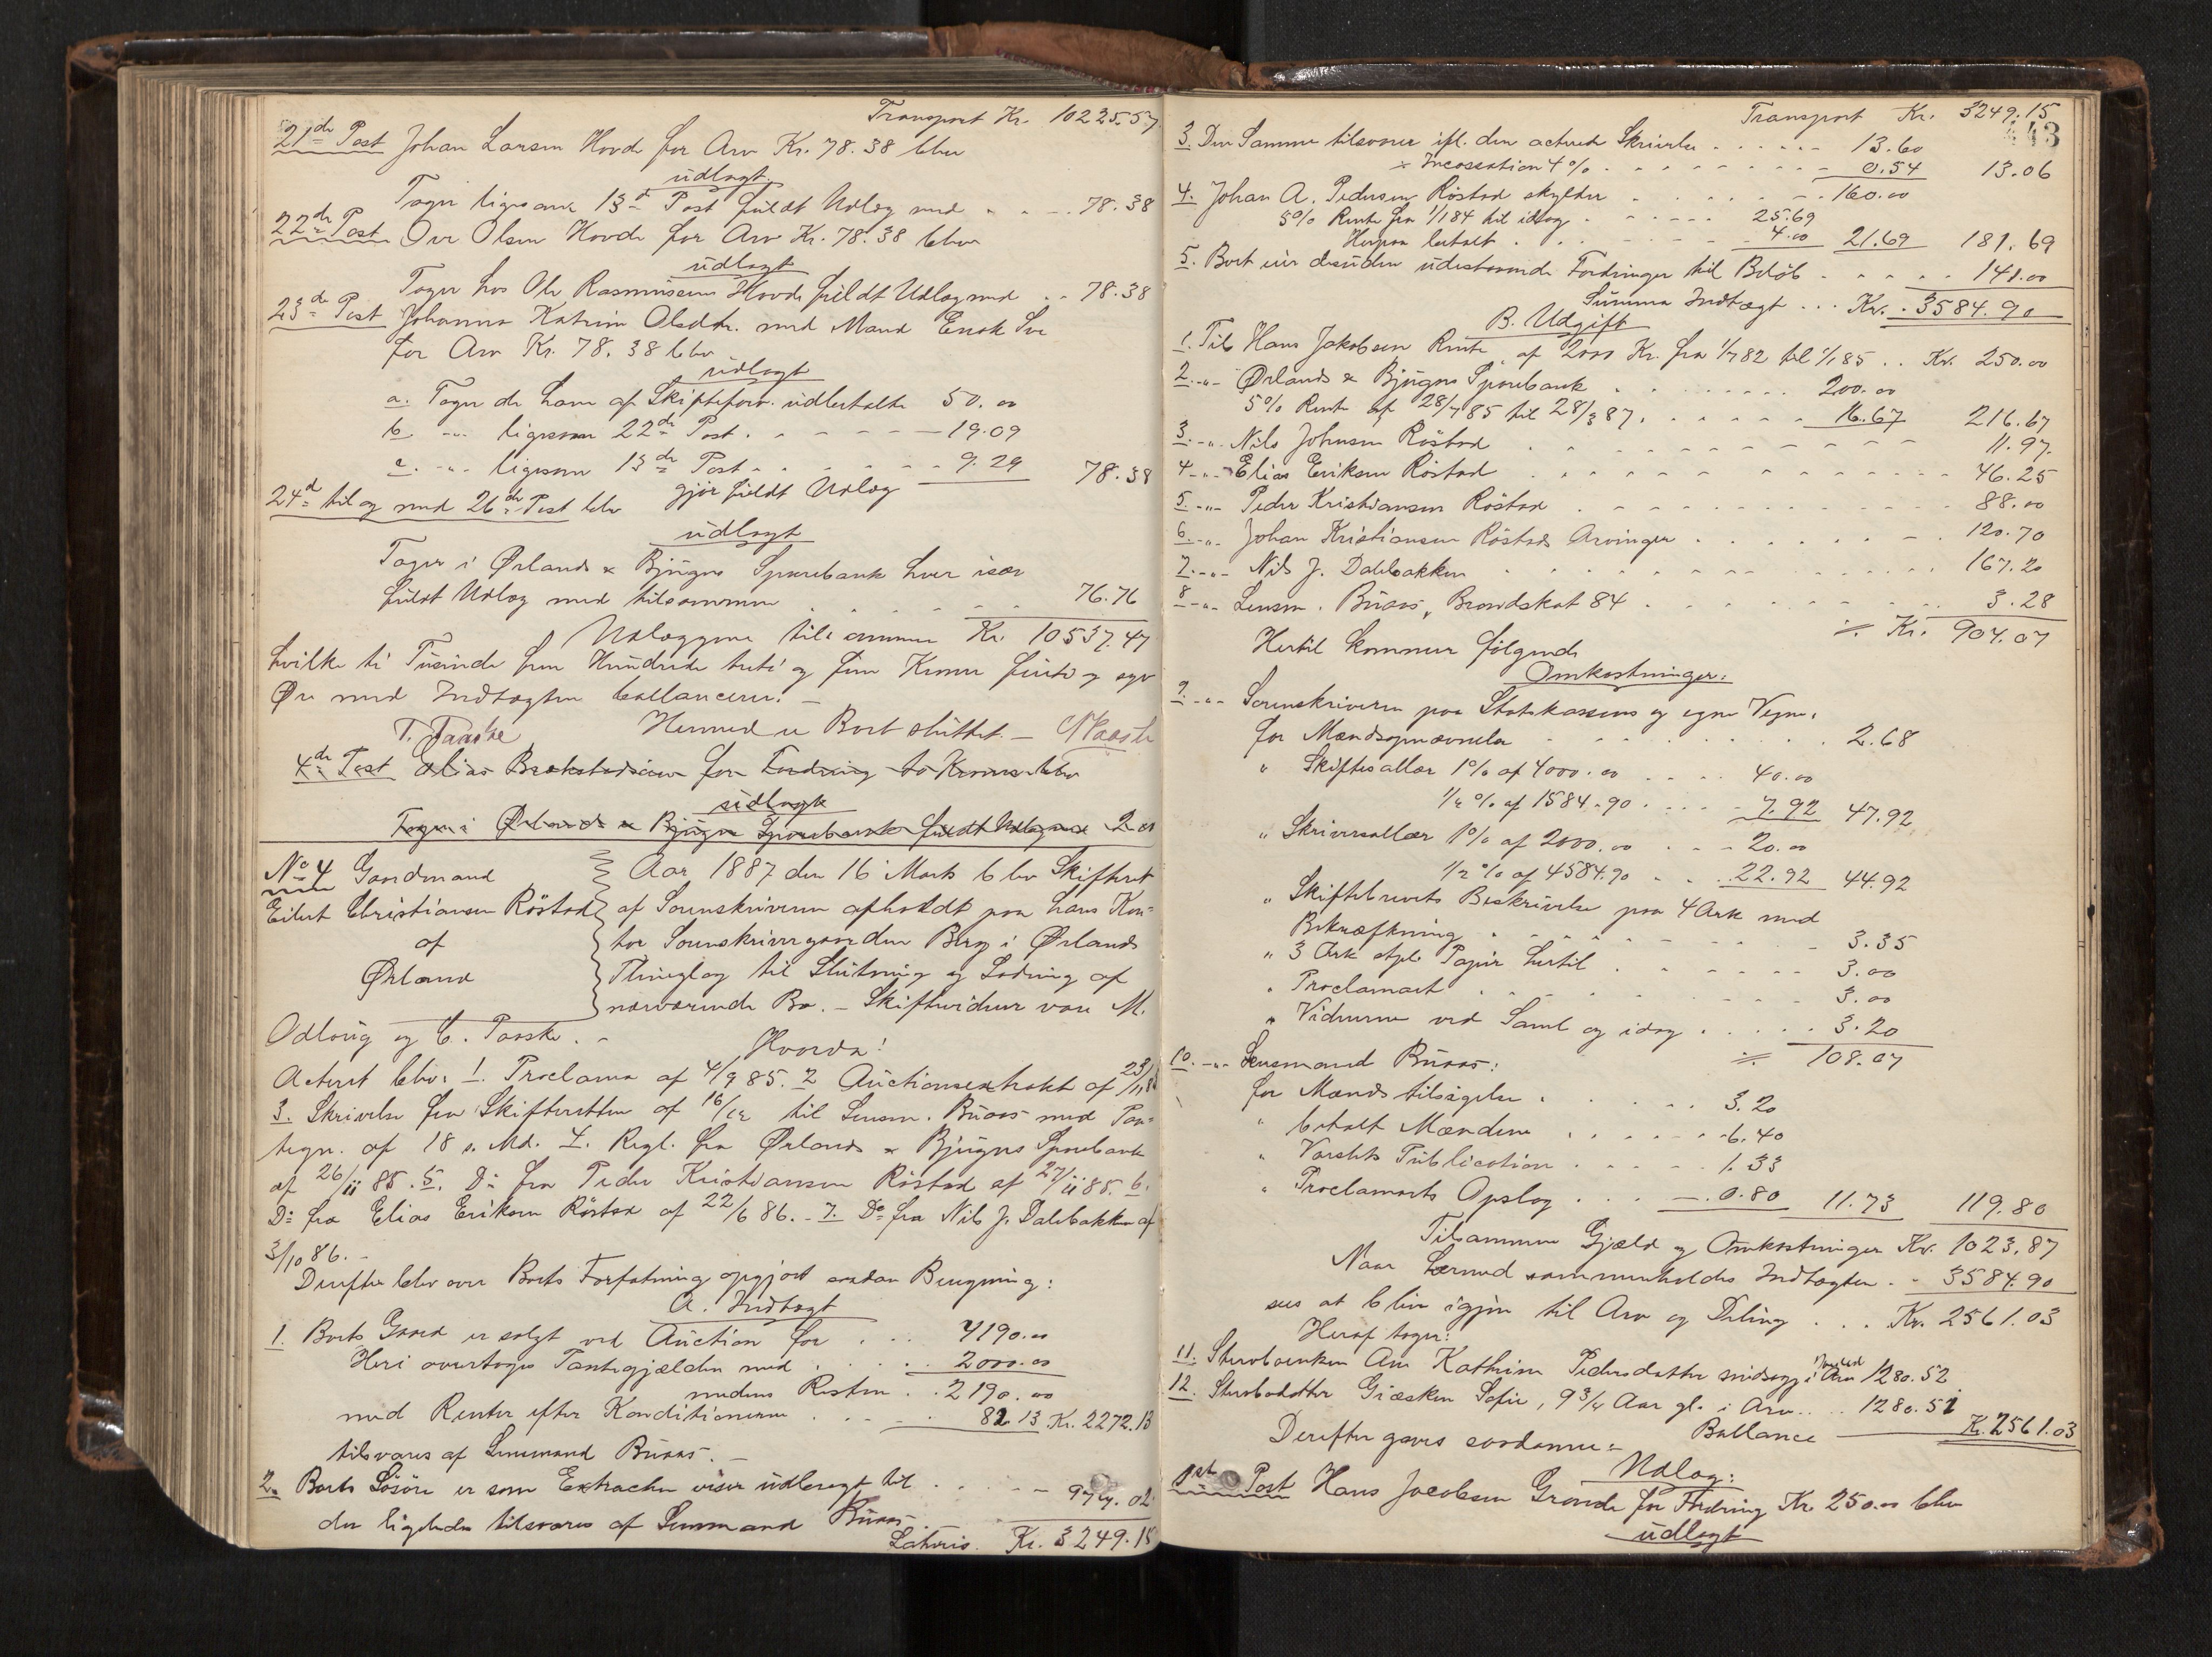 Transport Kr. 10225.57
21de Post Johan Larsen Hovde for Arv Kr. 78.38 blev
udlagt
Tager ligesom 13de Post fuldt Udlæg med 78.38
22de Post Ove Olsen Hovde for Arv Kr. 78.38 blev
udlagt
Tager hos Ole Rasmussen Hovde fuldt Udlæg med 78.38
23de Post Johanna Katrin Olsdtr. med Mand
for Arv Kr. 78.38 blev
udlagt
a. Tager de ham af Skifteforv. udbetalte 50.00
b. -"- ligesom 22de Post 19.09
c. -"- ligesom 13de Post 9.29
gjør fuldt Udlæg 78.38
24de til og med 26de Post blev
udlagt
Tager i Ørlands & Bjugns Sparebank hver især
fuldt Udlæg med tilsammen 76.76
Udlæggene tilsammen Kr. 10537.47
hvilke ti Tusinde fem Hundrede treti og syv Kroner firti og syv
Øre med Indtægten ballancerer. -
Hermed er Boet sluttet. -
4de Post Elias for Fordring to Kroner blev
udlagt
Tager i Ørlands & Bjugns Sparebank fuldt Udlæg med 2.00
No 4 Gaardmand
Eilert Christiansen Röstad
af
Ørland
Aar 1887 den 16 Marts blev Skifteret
af Sorenskriveren afholdt paa hans Kon-
tor Sorenskrivergaarden Berg i Ørlands
Thinglag til Slutning og Lodning af
nærværende Bo. - Skiftevidner vare M.
Odlaug og C. Paaske. -
Hvorda!
Acteret blev: 1. Proclama af 4/9 85. 2 Auctionsextrakt af 23/11 86
3. Skrivelse fra Skifteretten af 16/12 til Lensm. Buaas med Paa-
tegn. af 18 s. Md. 4. Regl. fra Ørlands & Bjugns Sparebank
af 26/11 85. 5. Do fra Peder Kristiansen Röstad af 27/11 85. 6.
Do fra Elias Eriksen Röstad af 22/6 86. - 7. Do fra Nils J. Dalebakken af
3/10 86. -
Derefter blev over Boets Forfatning opgjort saadan Beregning:
A. Indtægt
1. Boets Gaard er solgt ved Auction for 4190.00
Heri overtages Pantegjælden med 2000.00
medens Resten 2190.00
med Renter efter Konditionerne 82.13 Kr. 2272.13
tilsvares af Lensmand Buaas. -
2. Boets Løsøre er som Extracten viser udbragt til 977.02
der ligeledes tilsvares af Lensmand Buaas
Lateris. Kr. 3249.15
443
Transport Kr. 3249.15
3. Den Samme tilsvarer ifl. den acterede Skrivelse 13.60
÷ Incassation 4% 0.54 13.06
4. Johan A. Pedersen Röstad skylder 160.00
5% Rente fra 1/1 84 til idag 25.69
Herpaa betalt 4.00 21.69 181.69
5. Boet eier desuden udestaaende Fordringer til Beløb 141.00
Summa Indtægt Kr. 3584.90
B. Udgift
1. Til Hans Jakobsen Rente af 2000 Kr. fra 1/7 82 til 1/1 85 Kr. 250.00
2. -"- Ørlands & Bjugns Sparebank 200.00
5% Rente af 28/7 85 til 28/3 87. 16.67 216.67
3. -"- Nils Johnsen Röstad 11.97.
4 -"- Elias Eriksen Röstad 46.25
5. -"- Peder Kristiansen Röstad 88.00
6. -"- Johan Kristiansen Röstads Arvinger 120.70
7. -"- Nils J. Dalebakken 167.20
8 -"- Lensm. Buaas, Brandskat 84 3.28
÷ Kr. 904.07
Hertil kommer følgende
Omkostninger:
9. -"- Sorenskriveren paa Statskassens og egne Vegne.
for Mændsopnævnelse 2.68
" Skiftesallær 1% af 4000.00 40.00
1/2 % af 1584.90 7.92 47.92
" Skriversallær 1% af 2000.00 20.00
1/2 % af 4584.90 22.92 44.92
" Skiftebrevets Beskrivelse paa 4 Ark med
Bekræftning 3.35
" 3 Ark stpl. Papir hertil 3.00
" Proclamaet 3.00
" Vidnerne ved Saml og idag 3.20
÷ 108.07
10. -"- Lensmand Buaas:
for Mænds tilsigelse 3.20
" betalt Mændene 6.40
" Varslets Publication 1.33
" Proclamaets Opslag 0.80 11.73 119.80
Tilsammen Gjæld og Omkostninger Kr. 1023.87
Naar hermed sammenholdes Indtægten 3584.90
sees at blive igjen til Arv og Deling Kr. 2561.03
Heraf tager:
11. Stervboenken Ane Kathrine Pedersdatter uidsagt i Boeslod 1280.52.
12. Sterbodatter Giæsken Sofie, 9 3/4 Aar gl. i Arv 1280.51
Ballance Kr. 2561.03
Derefter gaves saadanne:
Udlæg:
1ste Post Hans Jacobsen Grande for Fordring Kr. 250.00 blev
udlagt